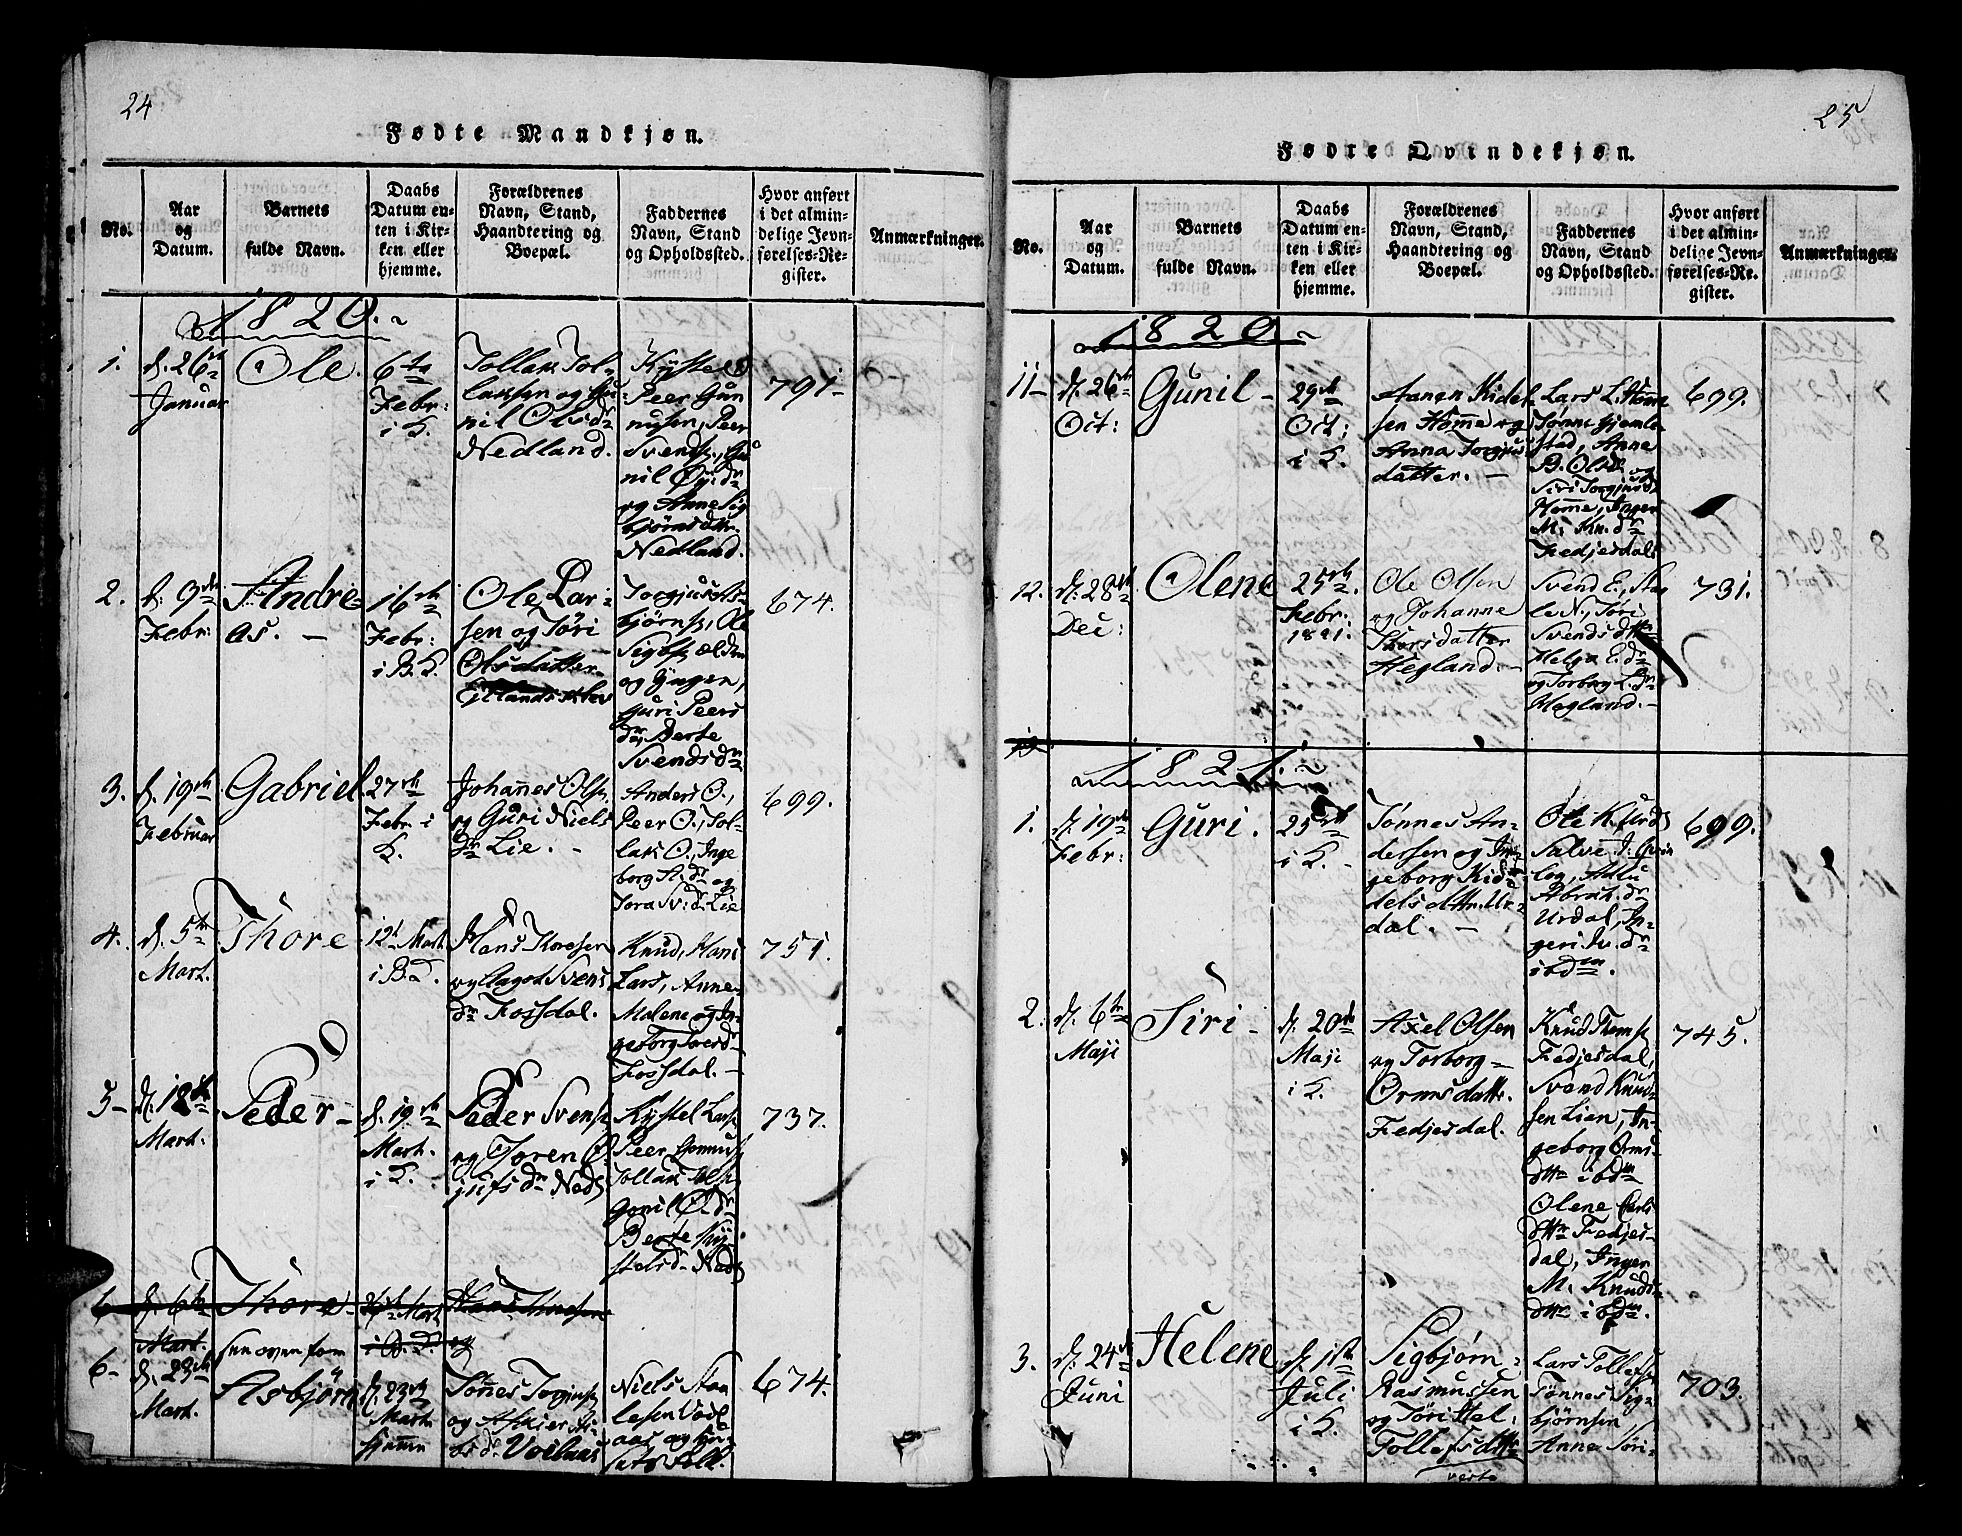 24
Fødte Mandkjøn.
No.
Aar
og
Datum.
Barnets
fulde Navn.
Daabs
Datum en-
ten i Kir-
ken eller
hjemme.
Forældrenes
Navn, Stand,
Haandtering og
Boepæl.
Faddernes
Navn, Stand
og Opholdssted.
Hvor anført
i det almin-
delige Jevn-
førelses-Re-
gister.
Anmærkninger.
1820.
1.
d. 26de
Januar
Ole.
6te
Febr:
i K.
Tollak Tol-
laksen og Gu-
nil Olsdr
Nedland.
Kystel
Peer Gun
nusen, Peer
Svends., Gu
nil
og Anne Sig
bjørnsdtr.
Nedland.
791.
2.
d. 9de
Febr:
Andre-
as. –
16de
Febr:
i B.K.
Ole Lar-
sen og Tøri
Olsdatter
Eilandsklev
Torgjus As-
bjørns., Ole
Sigbs.
og Gingen,
Guri Peers
dr, Berte
Svendsdr
674.
3.
d. 19de
Februar
Gabriel
27de
Febr. i
K.
Johannes Ols.
og Guri Niels
dr Lie. –
Anders O.,
Peer O., Tol-
lak O., Inge
borg A.dr og
Tora Sv:d. Lie
699.
4.
d. 5te
Mart.
Thore
12te Mart.
i B.K.
Hans Thoresen
og Aagot Svens
dr Fossdal.
Knud, Hans
Lars, Anne-
Malene og In-
geborg
Fossdal. –
751.
5 –
d. 18de
Mart.
Peder –
d. 19de
Mart.
i K. –
Peder Svens.
og Toren O.
jufsdr Neds
Kystel Lars.
Peer Gonnus.
Tollak Tols.
Gonil O.dr
Berte Kys-
telsdr Neds
737.
6
d. 6te
Mart.
Thore –
see oven for
Mart.
i B. K.
Hans Thoresen
og
6 –
d. 23de
Mart.
Asbjørn
d. 23de
Mart.
hjemme
Tønnes Torgjus.
og Asker
dr Voilaas
Niels Aan
lesen Voil
aas og hjem-
mets Folk.
674.
25
Fødte Qvindekjøn.
No.
Aar
og
Datum.
Barnets
fulde Navn.
Daabs
Datum en-
ten i Kir-
ken eller
hjemme.
Forældrenes
Navn, Stand,
Haandtering og
Boepæl.
Faddernes
Navn, Stand
og Opholdssted.
Hvor anført
i det almin-
delige Jevn-
førelses-Re-
gister.
Anmærkninger.
1820.
11 –
d. 26de
Oct:
Gunil –
29de
Oct:
i K.
Aanen Kidel-
sen Homme og
Anna Torgjus
datter. –
Lars L. Homme
Tønne Gjemle-
stad, Anne
B. Olsd. og
Siri Torgjusd.
Homme, Inger
M. Kn.dr
Fedjesdal
699.
12.
d. 28de
Dec:
Olene
25de
Febr:
1821.
Ole Olsen
og Johanne
datter
Hegland. –
Svend E., Sta
le N., Tøri
Svendsdtr
Helga E.dr
og Torborg L.dr
Hegland. –
731.
13
1821.
1.
d. 19de
Febr:
Guri.
25de
i K. –
Tønnes An-
dersen og In-
geborg Kid-
delsdttr. Ur-
dal. –
Ole K. Urd.
Salve J.
Abrah.dr
Urdal, In-
geri Jv.dr
ibdm.
699.
2.
d. 6te
Maji
Siri –
d. 20de
Maji
i K.
Axel Olsen
og Torborg –
Ormsdattr.
Fedjesdal.
Knud Thoms.
Fedjesdal,
Svend Knud-
sen Lian, In-
geborg Orms-
dttr ibdm
Olene Carls
dttr Fedjes-
dal, Inger
M. Knuds-
dttr ibdm.
745.
3.
d. 24de
Juni
Helene
d. 1ste
Juli
i K.
Sigbjørn
Rasmussen
og Tøri Hel.
Tollefsdttr
verte
Lars Tollefsen
Tønnes Sig-
bjørnsen
Anne Tori-
703.